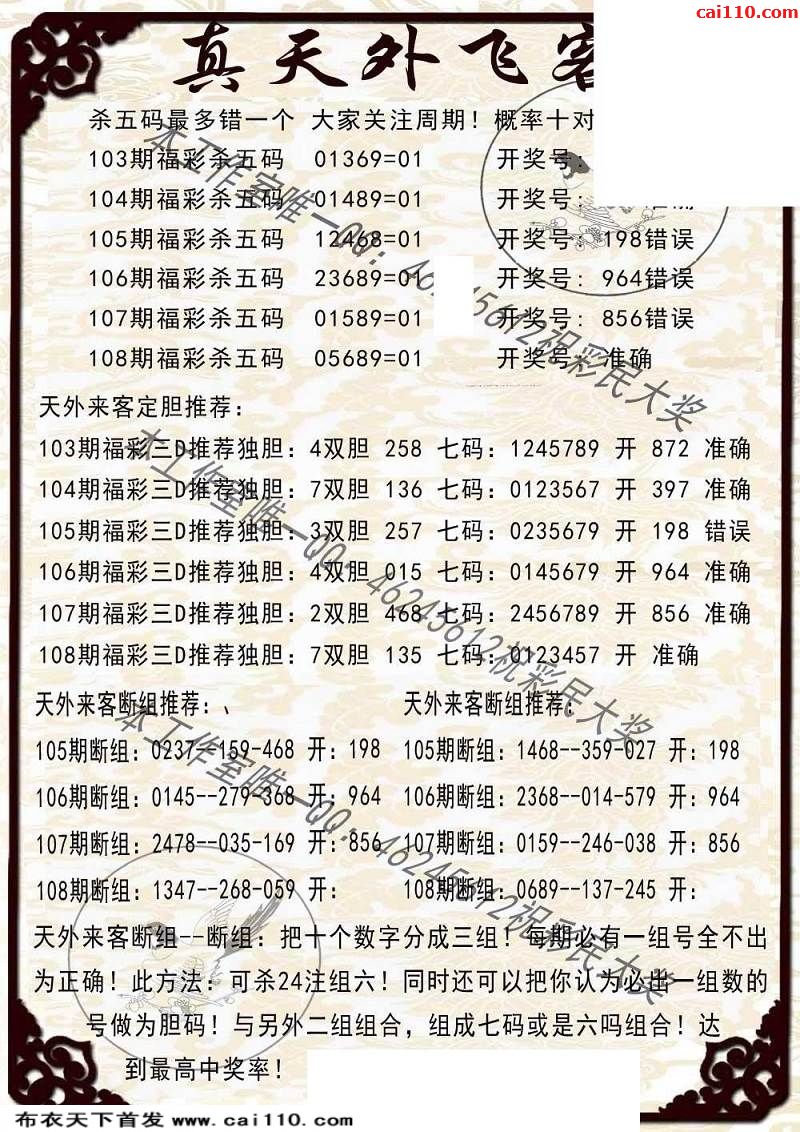 cai110.com
真天外飞客
杀五码最多错一个 大家关注周期！概率十对
103期福彩杀五码 01369=01 开奖号:
104期福彩杀五码 01489=01 开奖号: 准确
105期福彩杀五码 12468=01 开奖号: 198错误
106期福彩杀五码 23689=01 开奖号: 964错误
107期福彩杀五码 01589=01 开奖号: 856错误
108期福彩杀五码 05689=01 开奖号: 准确
天外来客定胆推荐:
103期福彩三D推荐独胆: 4双胆 258 七码: 1245789 开 872 准确
104期福彩三D推荐独胆: 7双胆 136 七码: 0123567 开 397 准确
105期福彩三D推荐独胆: 3双胆 257 七码: 0235679 开 198 错误
106期福彩三D推荐独胆: 4双胆 015 七码: 0145679 开 964 准确
107期福彩三D推荐独胆: 2双胆 468 七码: 2456789 开 856 准确
108期福彩三D推荐独胆: 7双胆 135 七码: 0123457 开 准确
天外来客断组推荐:、 天外来客断组推荐:
105期断组: 0237--159-468 开: 198 105期断组: 1468--359-027 开: 198
106期断组: 0145--279-368 开: 964 106期断组: 2368--014-579 开: 964
107期断组: 2478--035-169 开: 856 107期断组: 0159--246-038 开: 856
108期断组: 1347--268-059 开: 108期断组: 0689--137-245 开:
天外来客断组--断组: 把十个数字分成三组！每期必有一组号全不出
为正确！此方法: 可杀24注组六！同时还可以把你认为必出一组数的
号做为胆码！与另外二组组合，组成七码或是六吗组合！达
到最高中奖率！
本工作室唯一QQ: 46245612祝彩民大奖
本工作室唯一QQ: 46245612祝彩民大奖
本工作室唯一QQ: 46245612祝彩民大奖
布衣天下首发 www.cai110.com